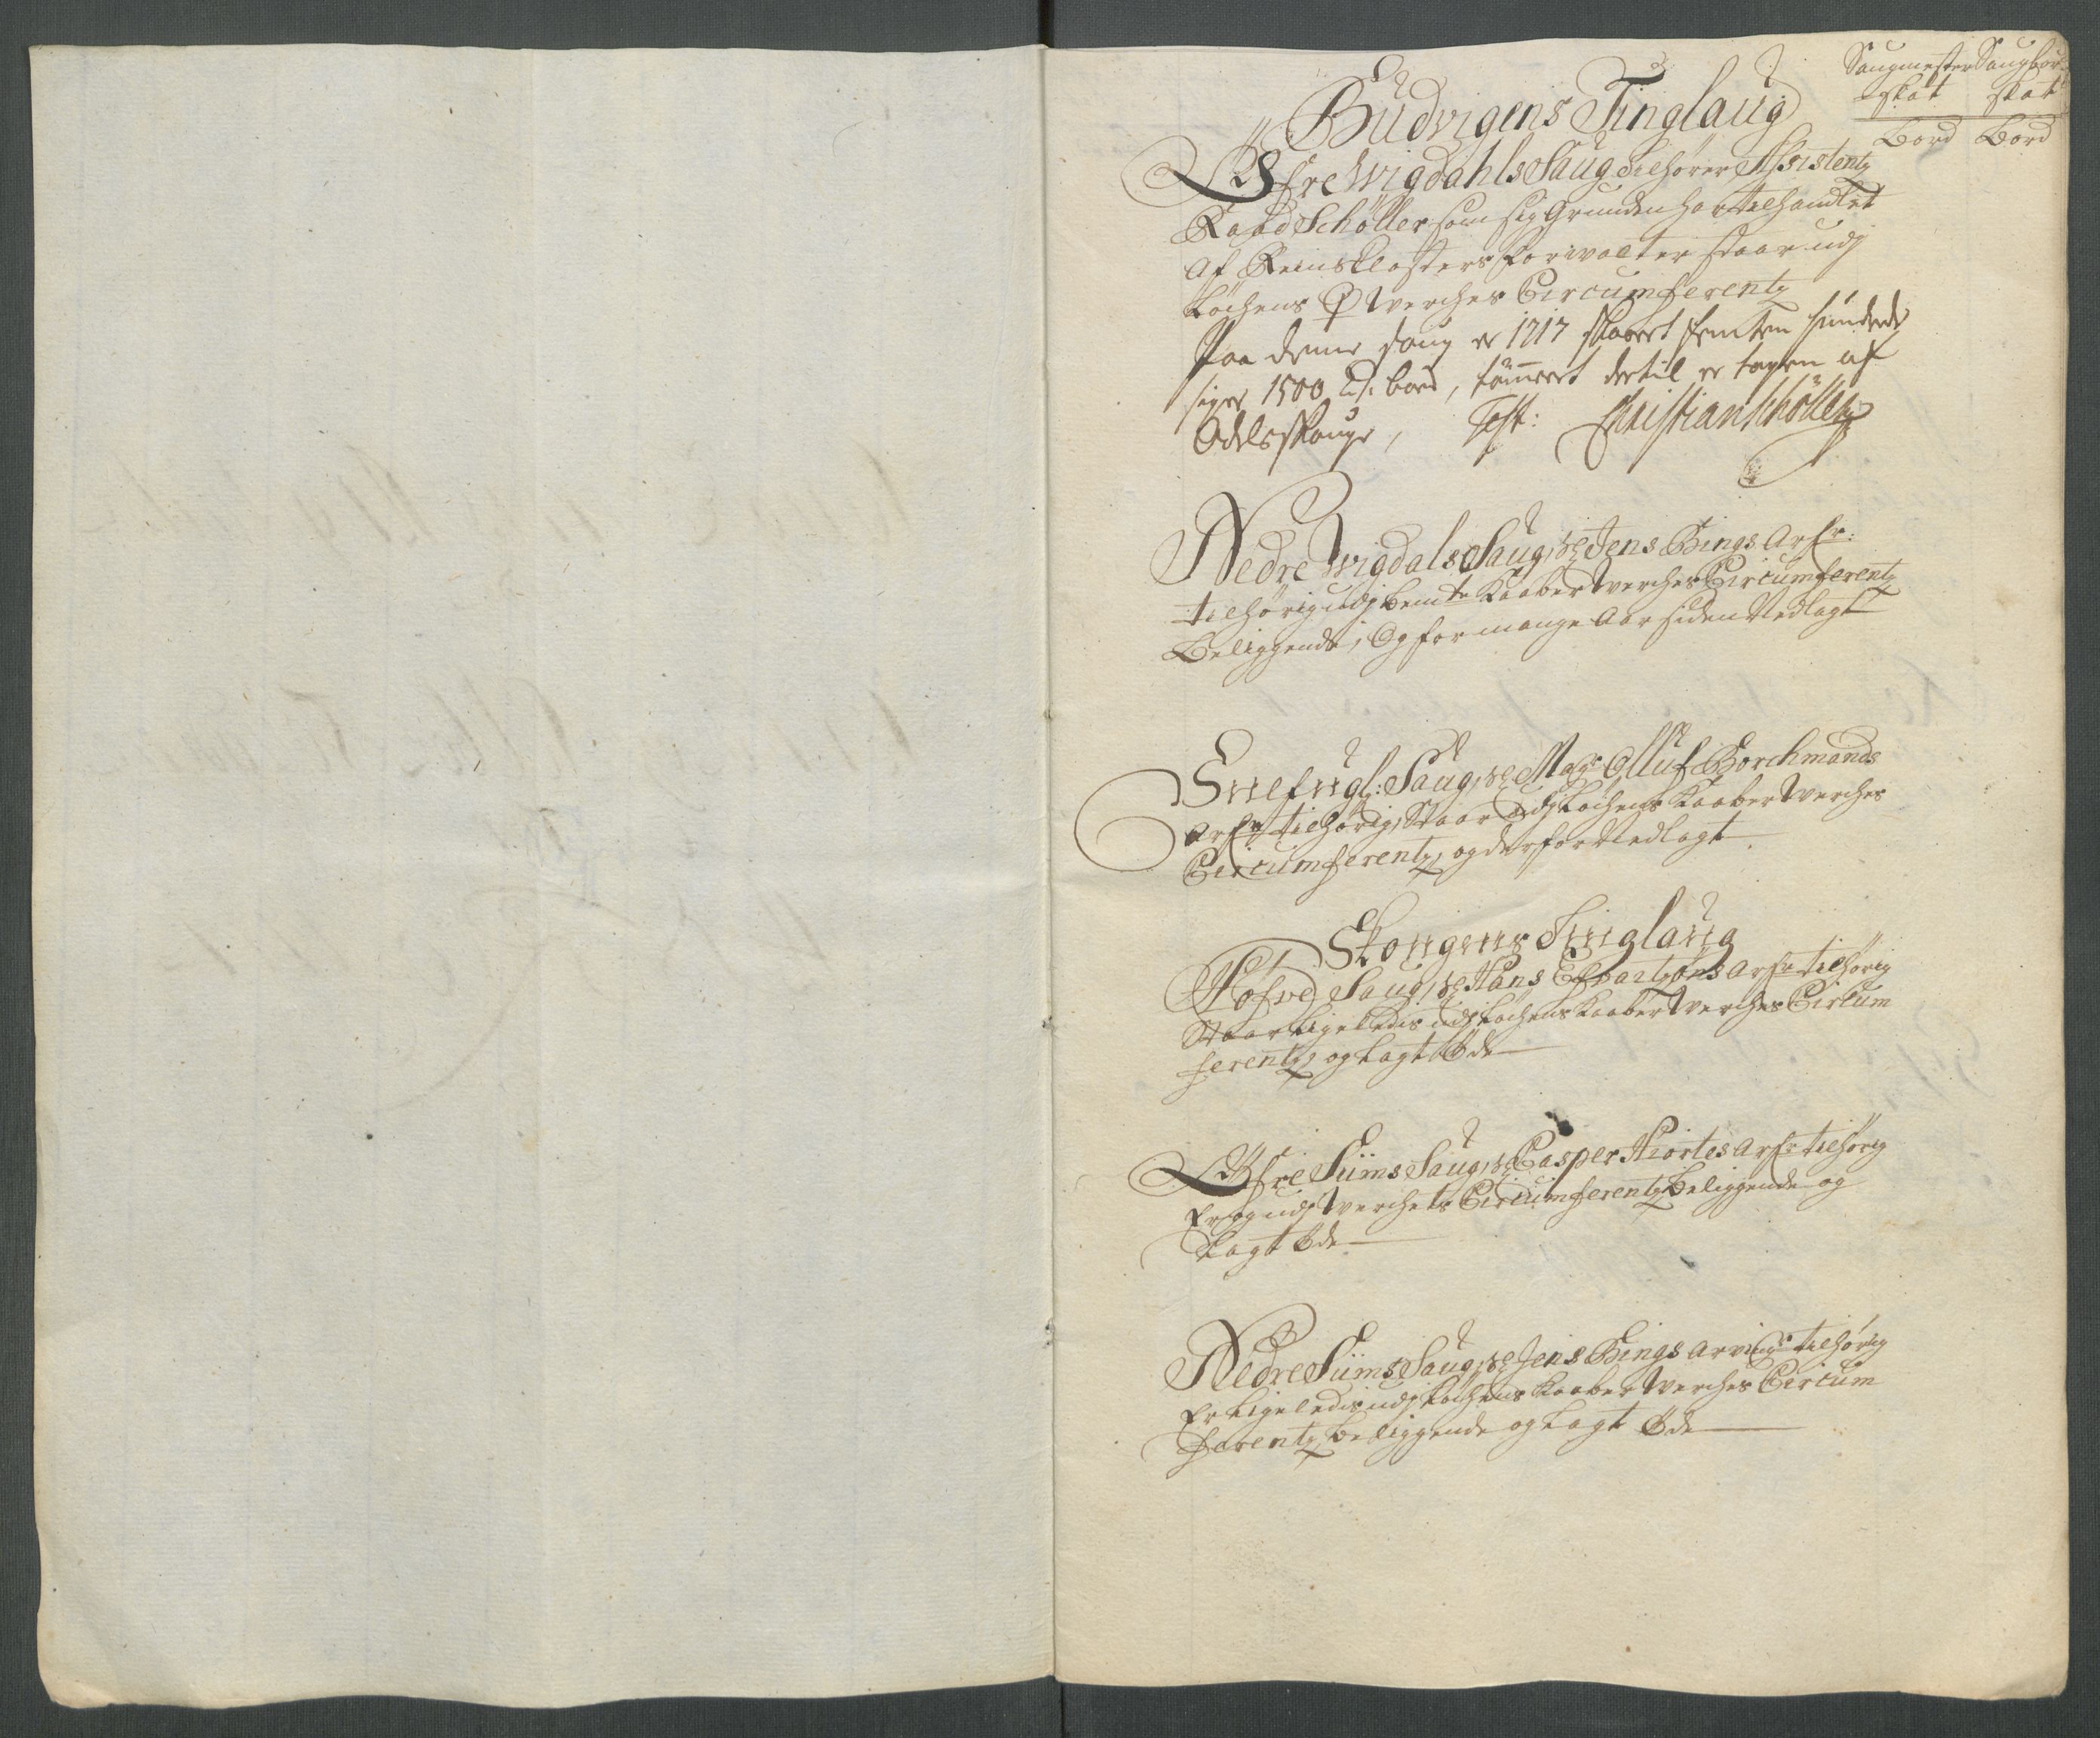 Saugmester Saugbor
skat skat
Bord Bord
Budvigens Tinglaug
Øfre Wigdahls Saug tilhører Assistentz
Raad Schøller som sig Grunden har tilhandlet
af Reins Closters forvalter staar udj
Løchens ♀ Werches Circumferentz
Paa denne Saug er 1717 skaaret femten hundrede
siger 1500 bord, tømmert dertil er tagen af
Odelsskouge, Test: Christian Schøller
Nedre Wigdals Saug, Sl Jens Bings Arfr:
tilhørig udj bemte Kaaber Werches Circumferentz
Beliggende, Og for mange Aar siden Nedlagt
Snefugl: Saug, Sl Mag: Olluf Borchmands
Arfr tilhørig, Staar udj Løchens Kaaber Werches
Circumferentz, og derfor Nedlagt
Stongens Tinglaug
Hofved Saug, Sl Hans Efvertzøns Arfr tilhørig
Staar ligeledis udj Løchens Kaaber Werches Circum
ferentz, og Lagt Øde
Øfre Süms Saug, Sl Casper Hiortes Arfr tilhørig
Er og udj Werchets Circumferentz Beliggende og
Lagt Øde
Nedre Süms Saug, Sl Jens Bings Arving: tilhørig
Er ligeledis udj Løchens Kaaber Werches Circum
ferentz beliggende og Lagt Øde